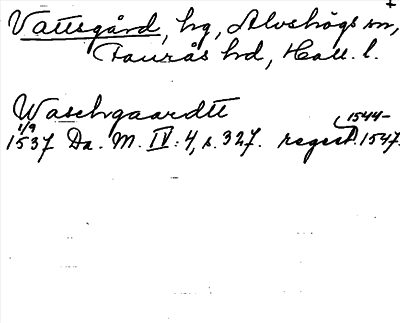 Vattsgård, hg, Alvshögs sn,
Faurås hd, Hall. l.
Waschgaardtt
1/9
1537 Da. M. IV: 4, s. 327. regest. 1544-1547.